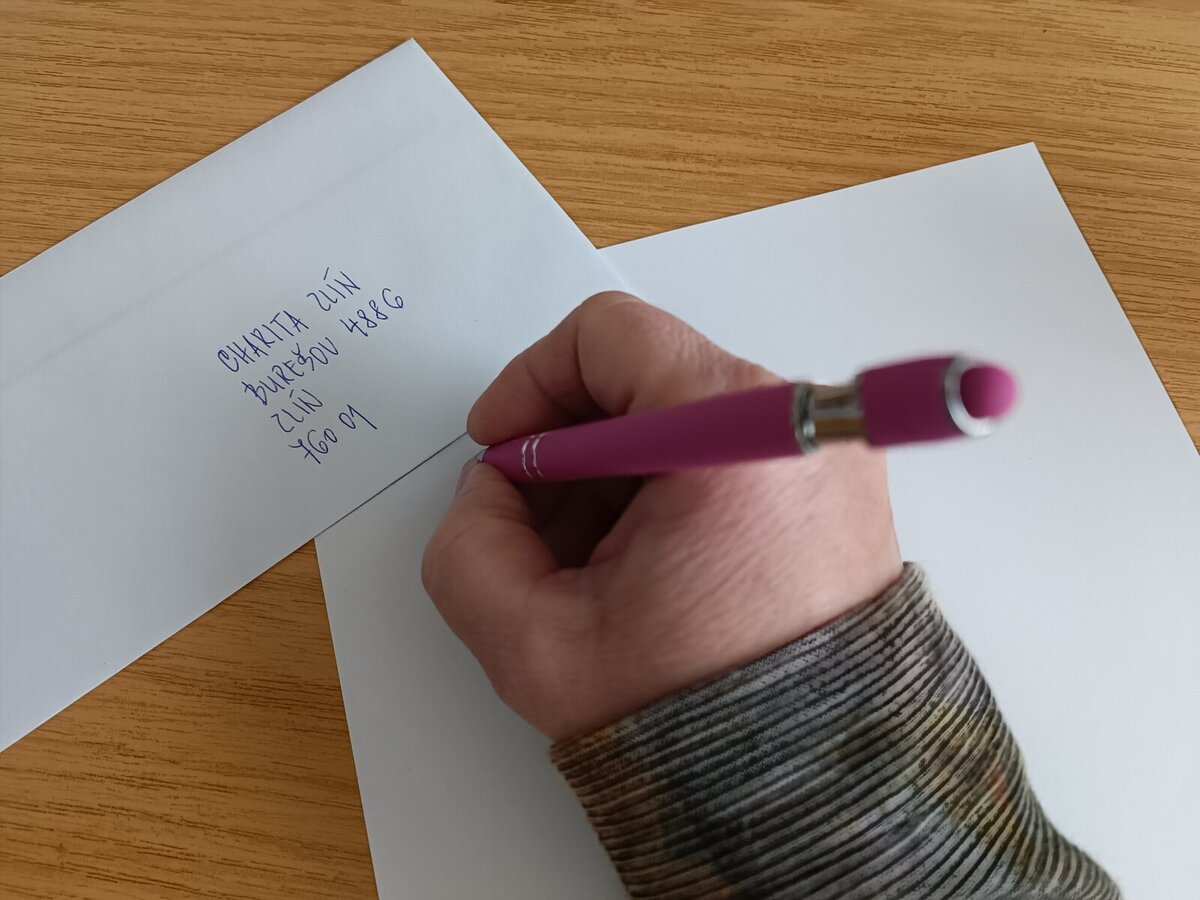 CHARITA ZLÍN
BUREŠOV 4886
ZLÍN
760 01